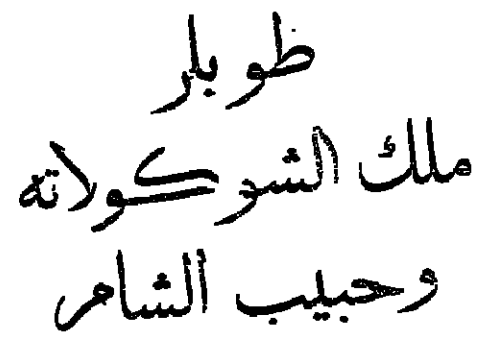 طوبلر
ملك الشوكولاته
وحبيب الشام